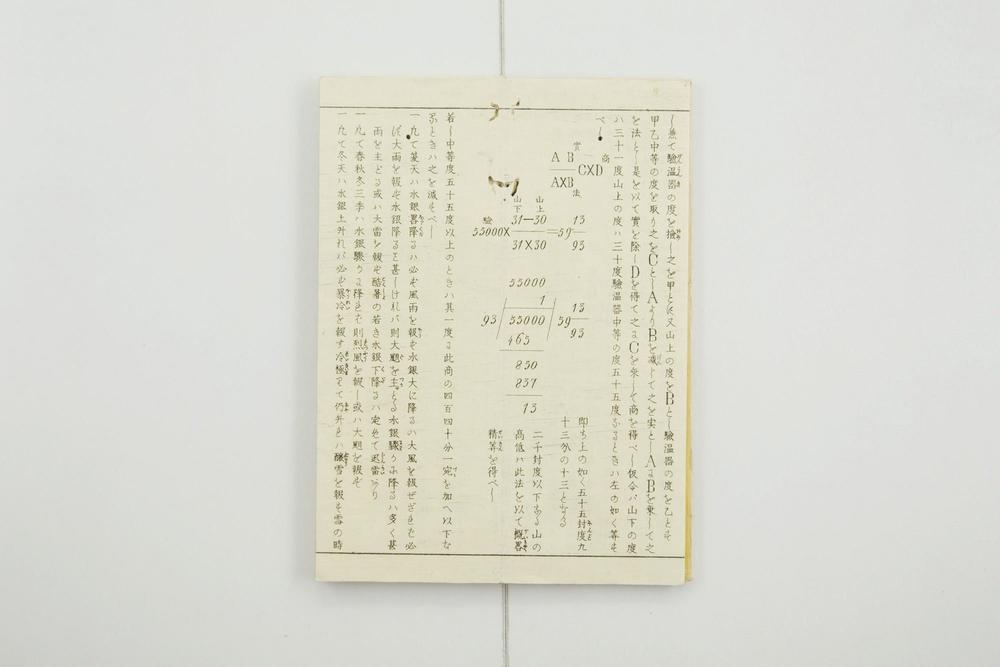 し兼て驗温器の度を撿し之を甲とし又山上の度をBとし驗温器の度を乙とそ
甲乙中等の度を取り之をCとしAよりBを減して之を実としAよBを乗して之
を法とし是を以て實を除しDを得て之よCを乗して商を得べし仮令バ山下の度
ハ三十一度山上の度ハ三十度驗温器中等の度五十五度なるときハ左の如く算そ
べし
實
A B
商
CXD
AXB
法
山上
山下
驗
55000X
31—30
31X30
=59
13
93
55000
1
93
55000
59
13
93
465
850
837
13
即ち上の如く五十五封度九
十三分の十三となる
二千封度以下なる山の
高低ハ此法を以て概畧
精筭を得べし
若し中等度五十五度以上のときハ其一度よ此商の四百四十分一宛を加へ以下な
るときハ之を減そべし
一凡て夏天ハ水銀畧降るハ必ず風雨を報ぞ水銀大に降るハ大風を報ぜざれを必
ず大雨を報ぞ水銀降る甚しけれバ則大颶を主どる水銀驟うよ降るハ多く甚
雨を主どる或ハ大雷を報ぞ酷暑の若き水銀下降るハ定めて迅雷あり
一凡て春秋冬三季ハ水銀驟うよ降れを則烈風を報し或ハ大颶を報ぞ
一凡て冬天ハ水銀上升れバ必ず寒冷を報す冷極りて仍升れハ釀雪を報そ雪の時